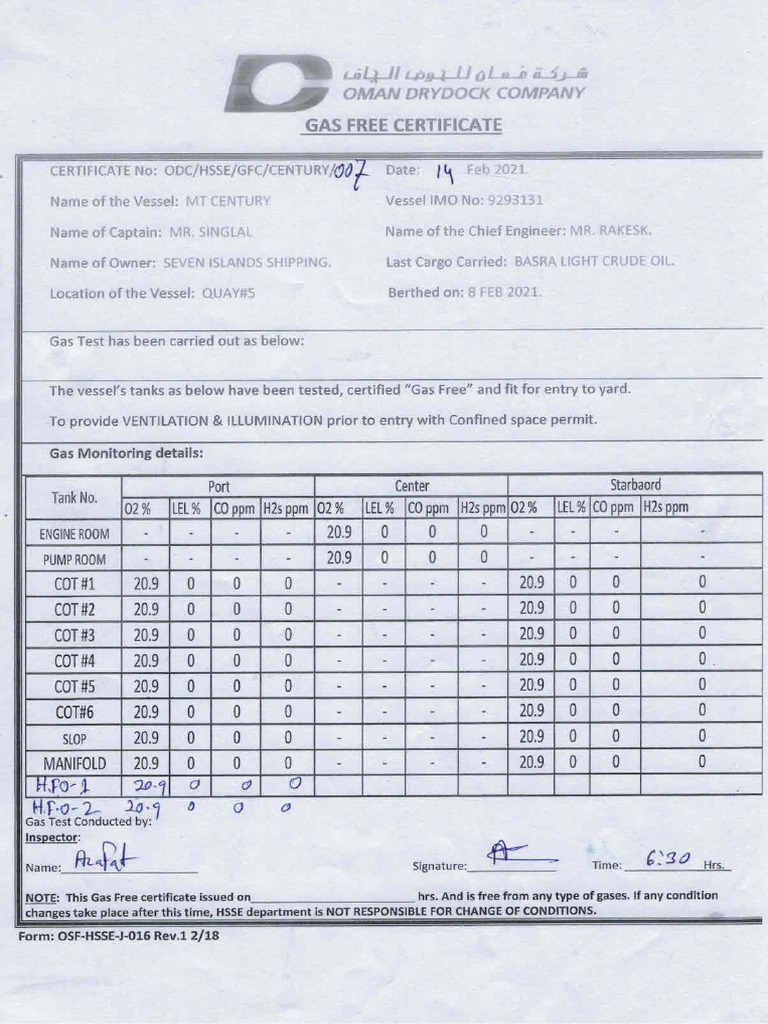 شركة عمان للحوض الجاف
OMAN DRYDOCK COMPANY
GAS FREE CERTIFICATE
CERTIFICATE No: ODC/HSSE/GFC/CENTURY/007 Date: 14 Feb 2021.
Name of the Vessel: MT CENTURY Vessel IMO No: 9293131
Name of Captain: MR. SINGLAL Name of the Chief Engineer: MR. RAKESK.
Name of Owner: SEVEN ISLANDS SHIPPING. Last Cargo Carried: BASRA LIGHT CRUDE OIL.
Location of the Vessel: QUAY#5 Berthed on: 8 FEB 2021.
Gas Test has been carried out as below:
The vessel's tanks as below have been tested, certified "Gas Free" and fit for entry to yard.
To provide VENTILATION & ILLUMINATION prior to entry with Confined space permit.
Gas Monitoring details:
Tank No. Port Center Starbaord
O2 % LEL % CO ppm H2s ppm O2 % LEL % CO ppm H2s ppm O2 % LEL % CO ppm H2s ppm
ENGINE ROOM - - - - 20.9 0 0 0 - - - -
PUMP ROOM - - - - 20.9 0 0 0 - - - -
COT #1 20.9 0 0 0 - - - - 20.9 0 0 0
COT #2 20.9 0 0 0 - - - - 20.9 0 0 0
COT #3 20.9 0 0 0 - - - - 20.9 0 0 0
COT #4 20.9 0 0 0 - - - - 20.9 0 0 0
COT #5 20.9 0 0 0 - - - - 20.9 0 0 0
COT#6 20.9 0 0 0 - - - - 20.9 0 0 0
SLOP 20.9 0 0 0 - - - - 20.9 0 0 0
MANIFOLD 20.9 0 0 0 - - - - 20.9 0 0 0
H.FO-1 20.9 0 0 0
H.F.O-2 20.9 0 0 0
Gas Test Conducted by:
Inspector:
Name: Arafat Signature: Time: 6:30 Hrs.
NOTE: This Gas Free certificate issued on hrs. And is free from any type of gases. If any condition
changes take place after this time, HSSE department is NOT RESPONSIBLE FOR CHANGE OF CONDITIONS.
Form: OSF-HSSE-J-016 Rev.1 2/18